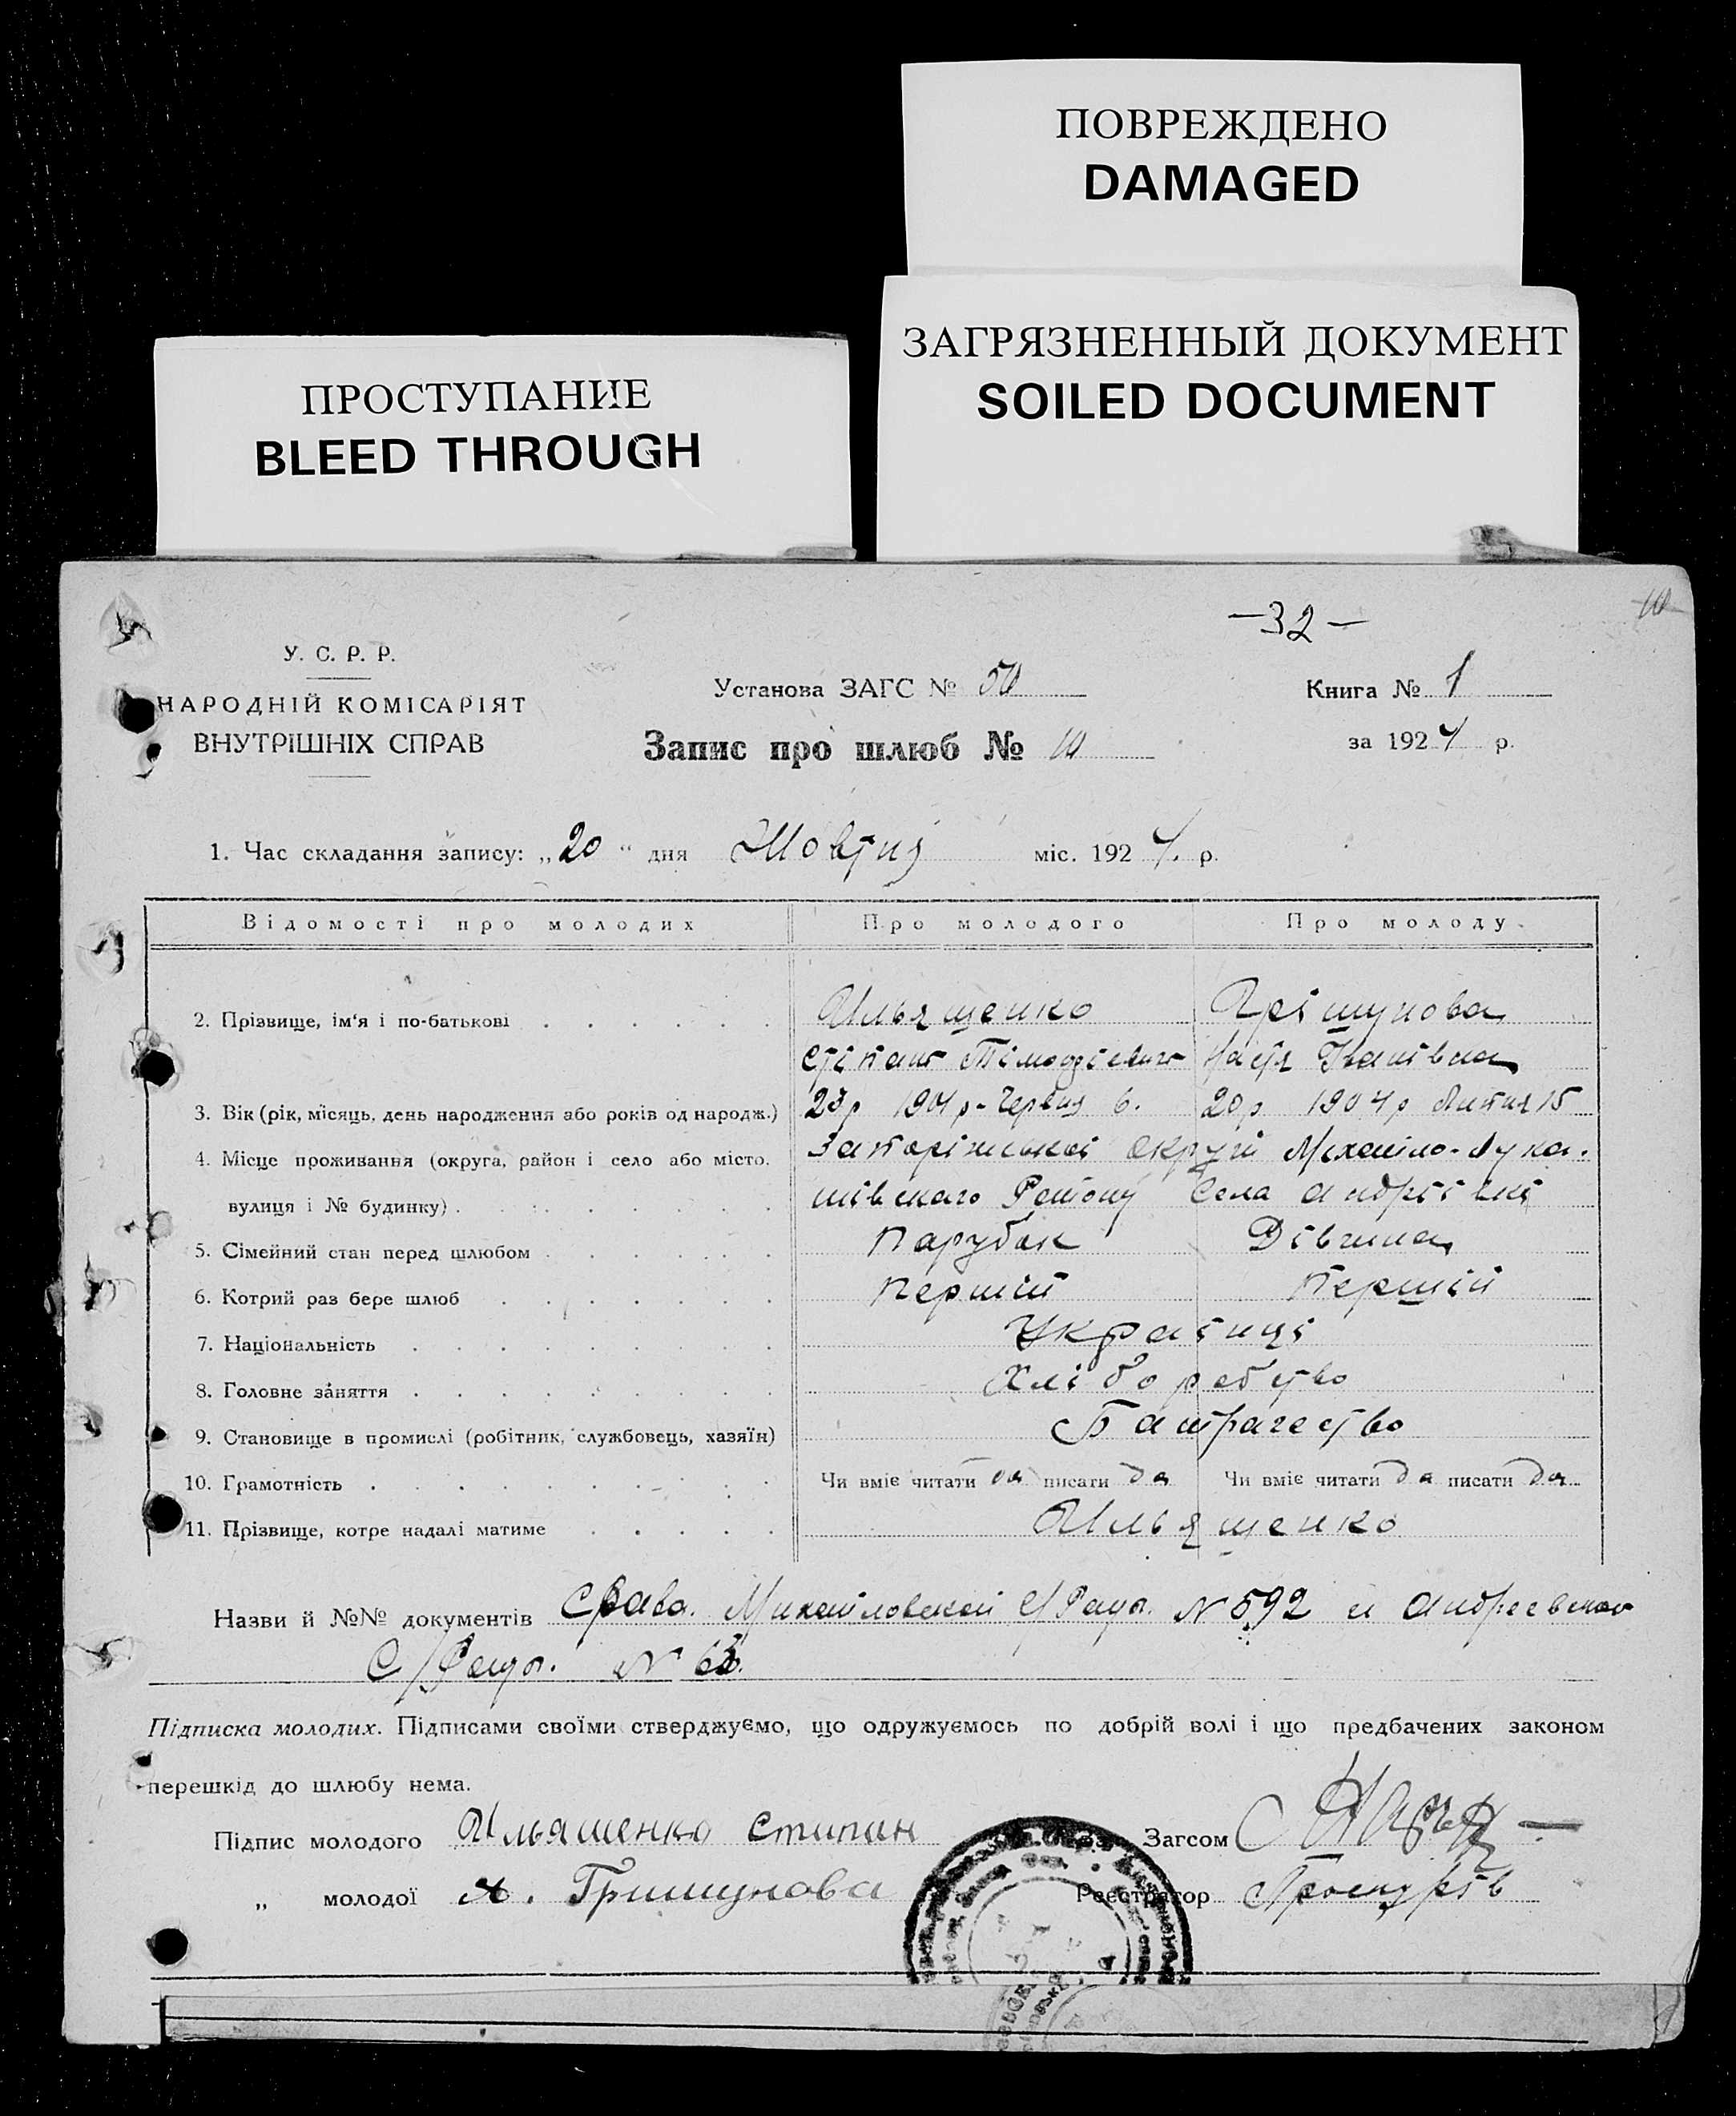 ПОВРЕЖДЕНО
DAMAGED
ЗАГРЯЗНЕННЫЙ ДОКУМЕНТ
SOILED DOCUMENT
ПРОСТУПАНИЕ
BLEED THROUGH
—32—
10
У. С. Р. Р.
НАРОДНІЙ КОМІСАРІЯТ
ВНУТРІШНІХ СПРАВ
Установа ЗАГС № 50
Книга № 1
Запис про шлюб № 10
за 1924 р.
1. Час складання запису: „20“ дня Жовтня міс. 1924. р.
Відомості про молодих Про молодого Про молоду
2. Прізвище, ім'я і по-батькові Ильященко Грішунова
Стіпан Тімофієвич Настя Іванівна
3. Вік (рік, місяць, день народження або років од народж.) 23р 1901р-Червня 6. 20р 1904р Липня 15
4. Місце проживання (округа, район і село або місто, Запоріжськоі Округи Михайло-Лука-
вулиця і № будинку) шівского Району Села Андріівкі
5. Сімейний стан перед шлюбом Парубок Дівчина
6. Котрий раз бере шлюб Першій Першій
7. Національність Украінці
8. Головне заняття Хліборобство
9. Становище в промислі (робітник, службовець, хазяїн) Батрачество
10. Грамотність Чи вміє читати да писати да Чи вміє читати да писати да
11. Прізвище, котре надалі матиме Ильященко
Назви й №№ документів Михайловской С/Рады. N 592 и Андреевской
С/Рады. N 63.
Підписка молодих. Підписами своїми стверджуємо, що одружуємось по добрій волі і що предбачених законом
перешкід до шлюбу нема.
Підпис молодого Ильяшенко Стипан
Загсом
„ молодої Н. Гришунова
Реєстратор